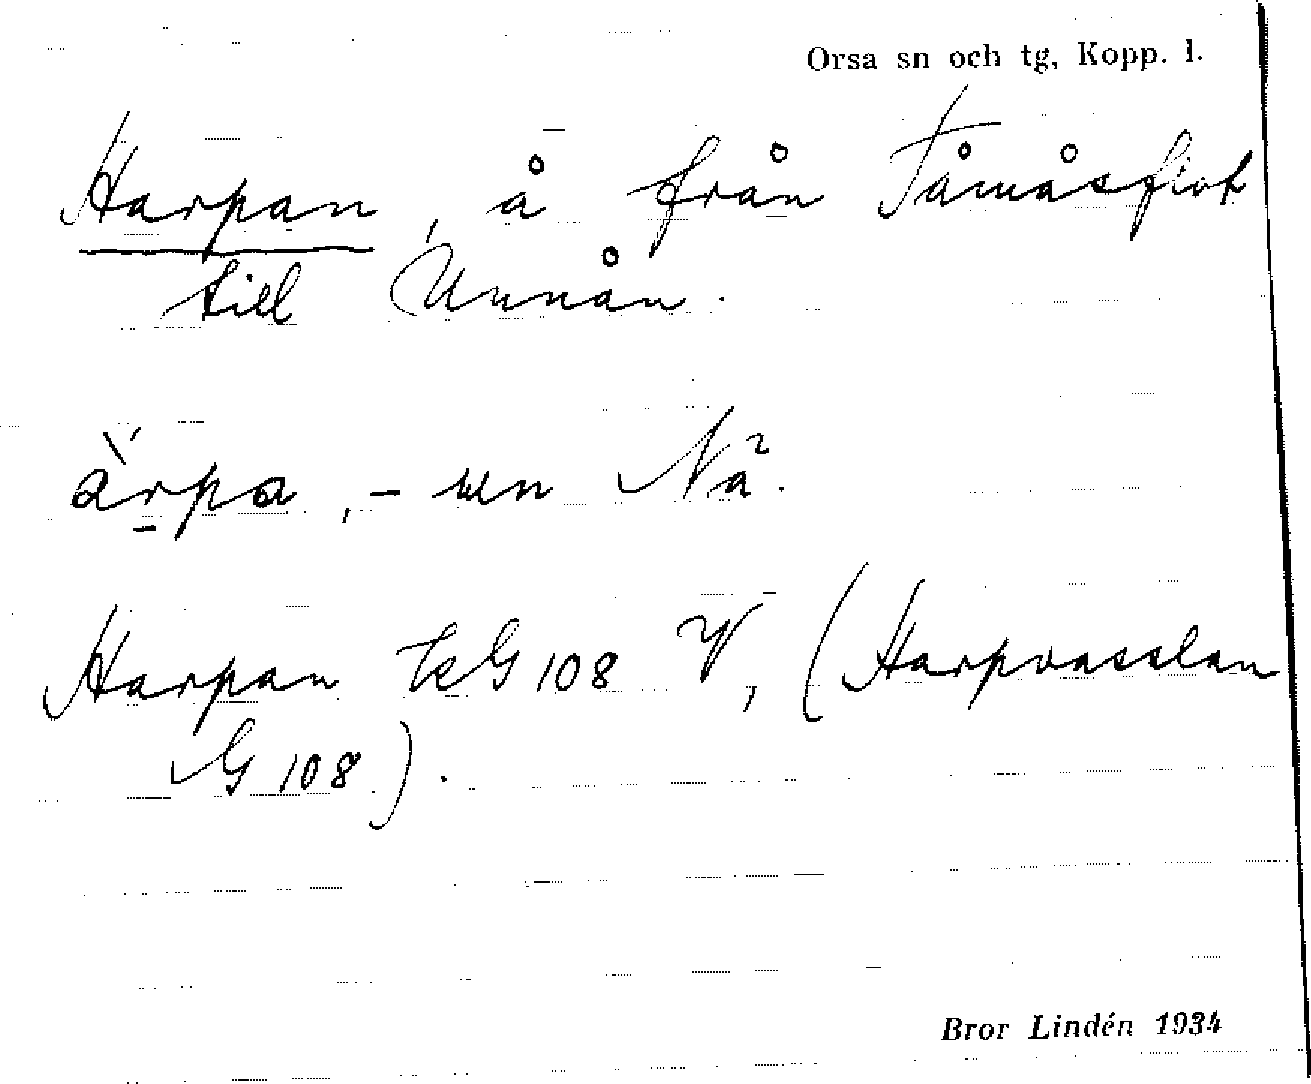 Orsa sn och tg, Kopp. l.
Harpan, å från
till Unnån.
ärpa, -un Nä.
Harpan kG 108 V, (Harpvasslan
G 108).
Bror Lindén 1934